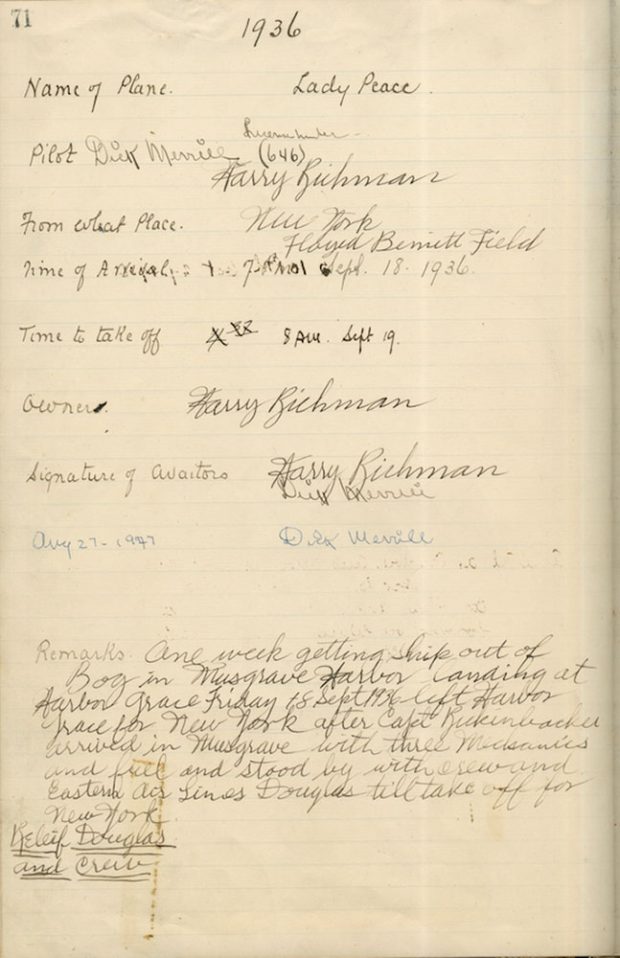 71
1936
Name of Plane. Lady Peace.
Pilot Dick Merrill (646)
Harry Richman
From what Place. New York
Floyd Bennett Field
Time of Arrival, Sept. 18. 1936.
Time to take off 8 AM. Sept 19.
Owner. Harry Richman
Signature of Avaitors Harry Richman
Dick Merrill
Aug 27-1947 Dick Merrill
Remarks. One week getting ship out of
Bog in Musgrave Harbor Landing at
Harbor Grace Friday 18 Sept 1936 left Harbor
Grace for New York after Capt Rickenbacker
arrived in Musgrave with three Mechanics
and fuel and stood by with crew and
Eastern Air Lines Douglas till take off for
New York.
Releif Douglas
and Crew